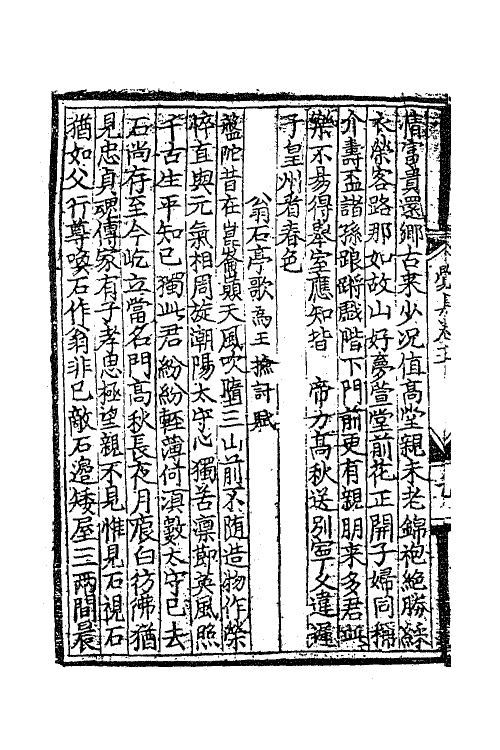 情富貴還鄉古来少况值高堂親未老錦袍絶勝綵
衣榮客路那如故山好夢萱堂前花正開子婦同稱
介壽盃諸孫踉蹡戲階下門前更有親朋来多君無
樂不易得舉室應知皆 帝力髙秋送别寧久違遲
子皇州看春色
翁石亭歌為王 撫討賦
盤陀昔在崑崙巔天風吹墮三山前不随造物作榮
悴直與元氣相周旋潮陽太守心獨苦凛節英風照
千古生平知己獨此君紛紛輕薄何須數太守已去
石尚存至今屹立當名門高秋長夜月痕白彷彿猶
見忠貞魂傳家有子孝忠極望親不見惟見石視石
猶如父行尊喚石作翁非已敵石邉矮屋三兩間晨